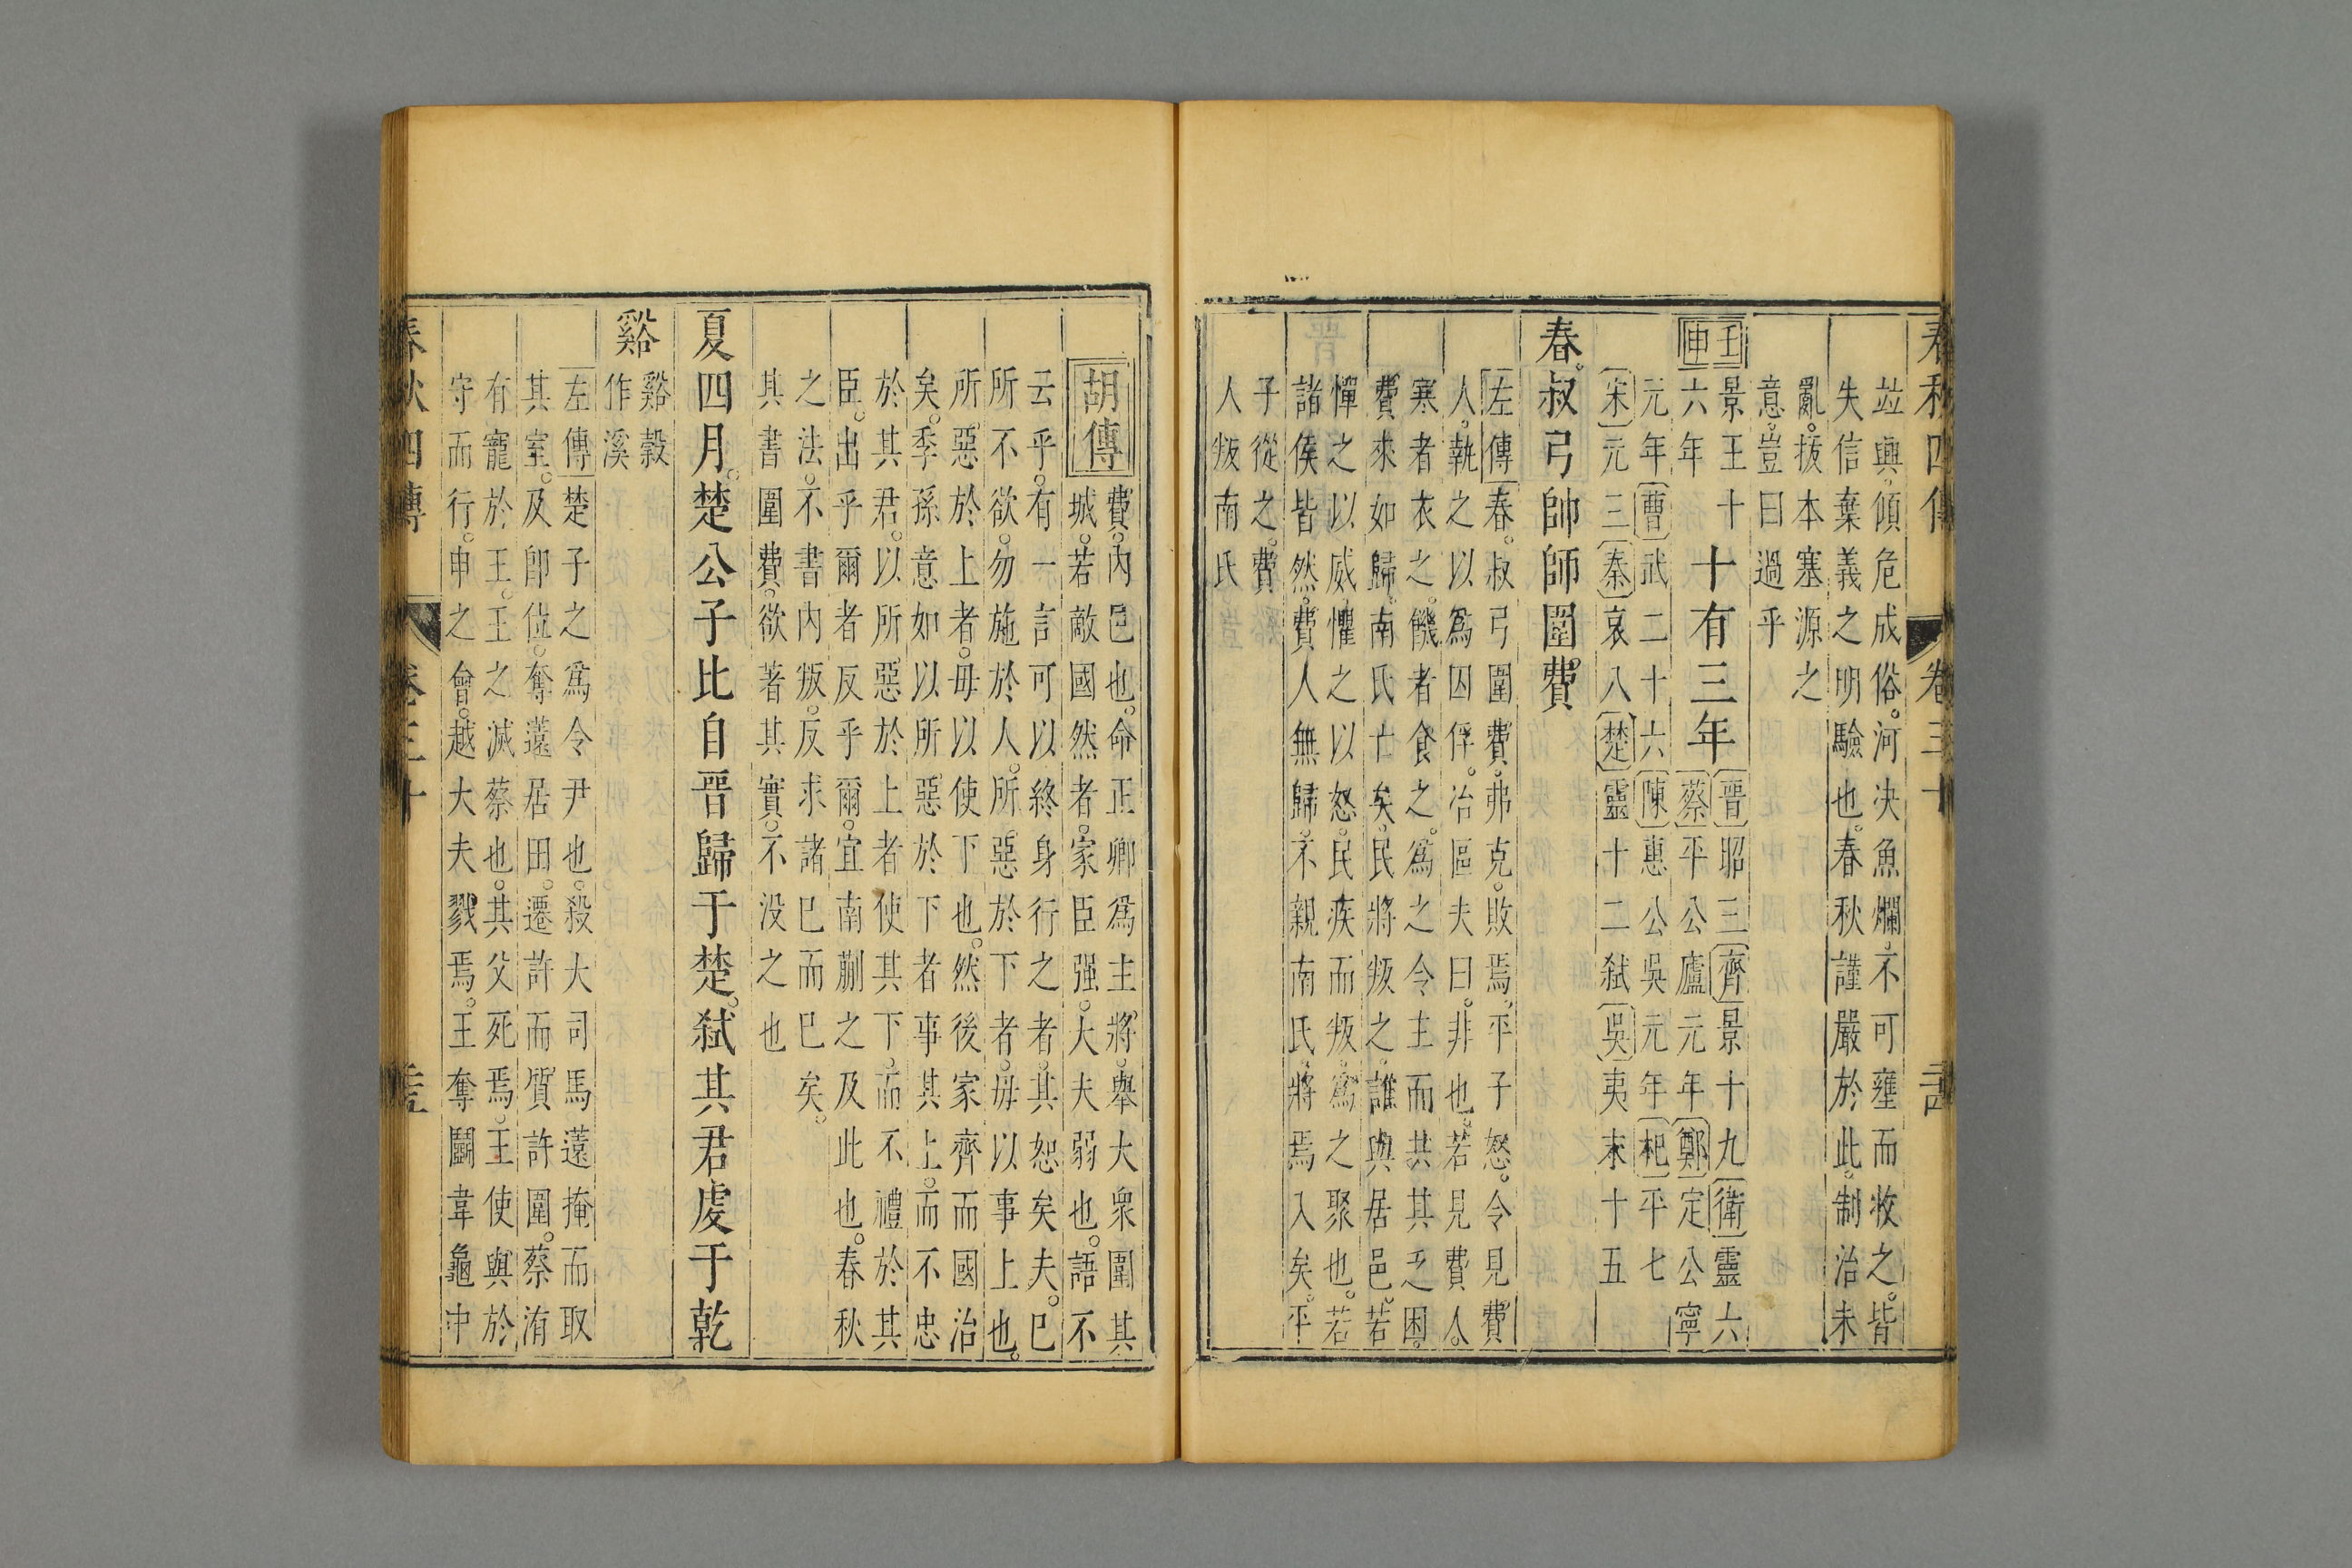 春秋四傳 卷三十
竝興傾危成俗河決魚爛不可壅而收之皆
失信棄義之明驗也春秋謹嚴於此制治未
亂拔本塞源之
意豈曰過乎
壬申
景王十
六年
十有三年
晉昭三齊景十九衛靈六
蔡平公廬元年鄭定公寧
元年曹武二十六陳惠公吳元年杞平七
宋元三秦哀八楚靈十二弑吳夷末十五
春叔弓帥師圍費
左傳春叔弓圍費弗克敗焉平子怒令見費
人執之以爲囚俘冶區夫曰非也若見費人
寒者衣之饑者食之爲之令主而共其乏困
費來如歸南氏亡矣民將叛之誰與居邑若
憚之以威懼之以怒民疾而叛爲之聚也若
諸侯皆然費人無歸不親南氏將焉入矣平
子從之費
人叛南氏
胡傳
費內邑也命正卿爲主將舉大衆圍其
城若敵國然者家臣强大夫弱也語不
云乎有一言可以終身行之者其恕矣夫己
所不欲勿施於人所惡於下者毋以事上也
所惡於上者毋以使下也然後家齊而國治
矣季孫意如以所惡於下者事其上而不忠
於其君以所惡於上者使其下而不禮於其
臣出乎爾者反乎爾宜南蒯之及此也春秋
之法不書內叛反求諸已而已矣
其書圍費欲著其實不没之也
夏四月楚公子比自晉歸于楚弑其君虔于乾
谿
谿穀
作溪
左傳楚子之爲令尹也殺大司馬薳掩而取
其室及卽位奪薳居田遷許而質許圍蔡洧
有寵於王王之滅蔡也其父死焉王使與於
守而行申之會越大夫戮焉王奪鬭韋龜中
春秋四傳 卷三十